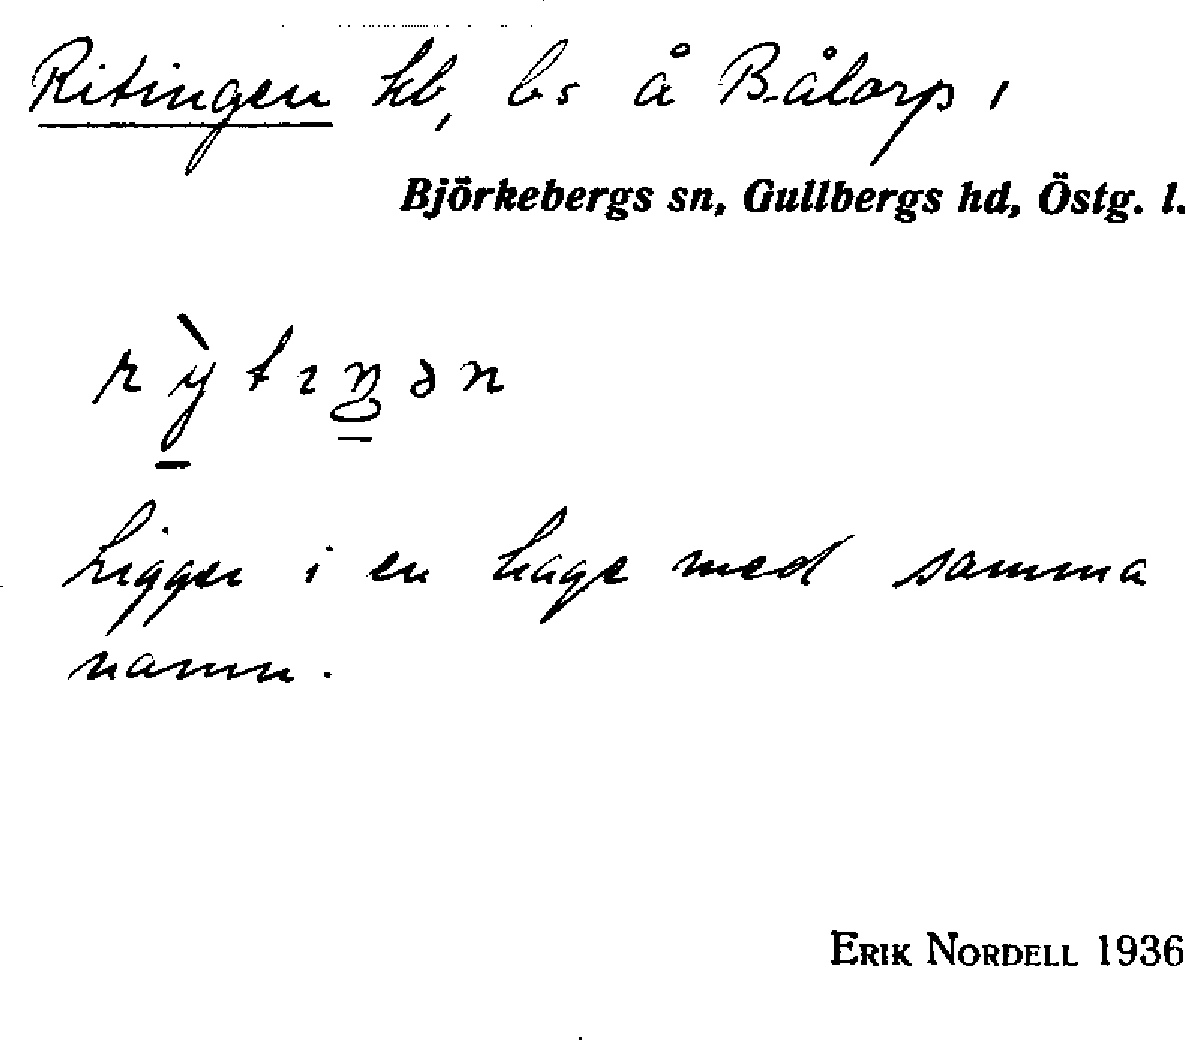 Ritingen kb, bs å Bålorp,
Björkebergs sn, Gullbergs hd, Östg. l.
Ligger i en hage med samma
namn.
ERIK NORDELL 1936